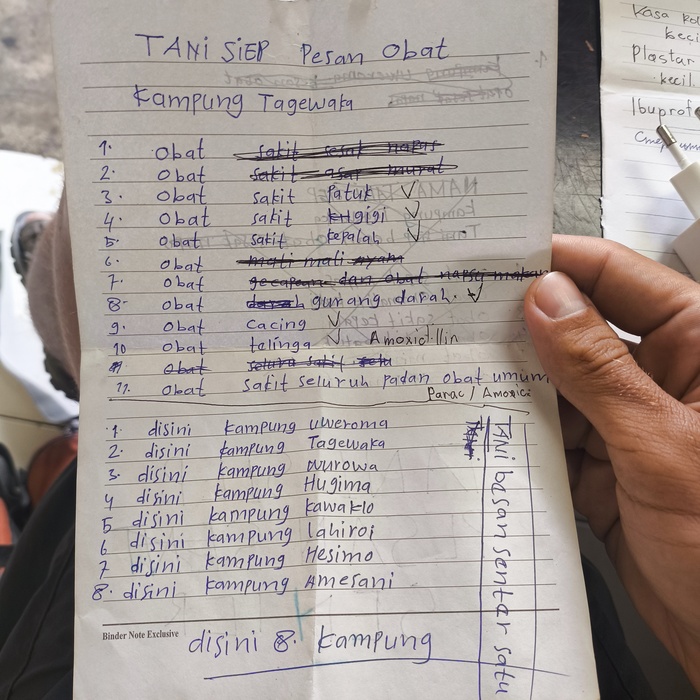 TANI SIEP Pesan Obat
Kampung Tagewaka
1. Obat sakit sesat napas
2. Obat sakit asar baurat
3. Obat sakit Patuk ✓
4. Obat sakit gigi ✓
5. Obat sakit kepalah ✓
6. Obat mali mali ayam
7. Obat gecapean dan obat napsu makan
8. Obat darah gurang darah. ✓
9. Obat cacing ✓
10 Obat talinga ✓ Amoxicillin
11 Obat
11. Obat sakit seluruh padan obat umum
Parac / Amoxici
1. disini kampung uweroma
2. disini kampung Tagewaka
3. disini kampung wurowa
4 disini kampung Hugima
5 disini kampung kawaklo
6 disini kampung lahiroi
7 disini kampung Hesimo
8. disini kampung Amesani
TANI basan sentar satu
Binder Note Exclusive
disini 8. kampung
Kasa
keci
Plastar
kecil.
Ibuprof